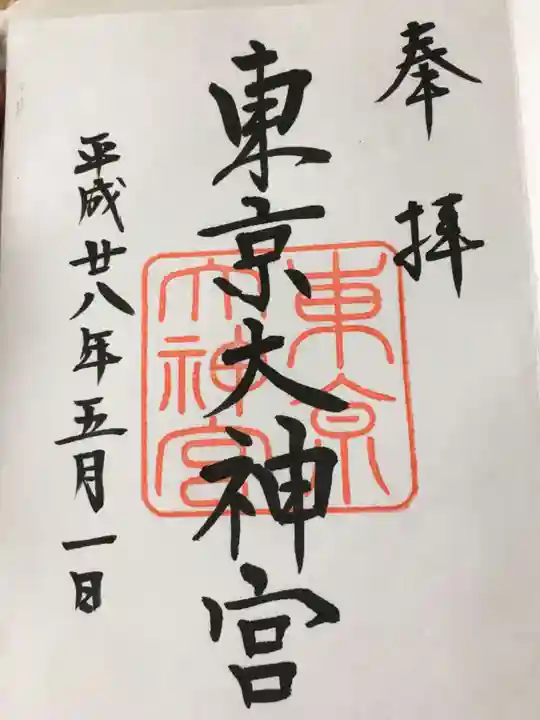 奉拝
東京大神宮
東京大神宮
平成廿八年五月一日